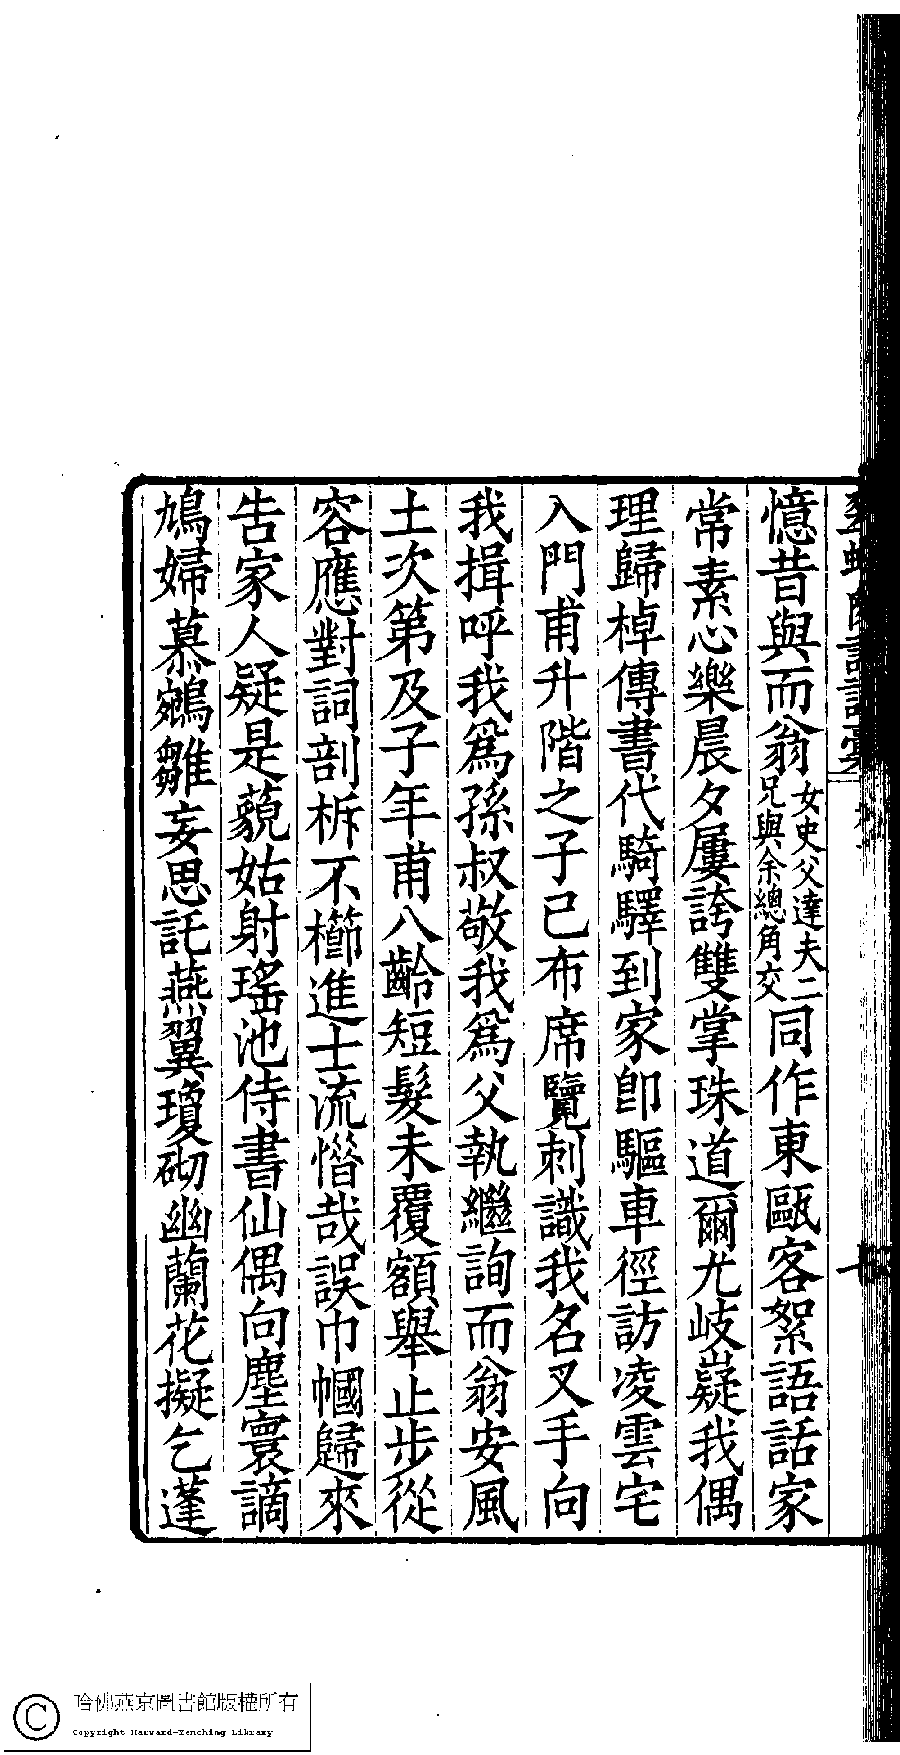 憶昔與而翁女史父達夫二兄與余總角交同作東甌客絮語話家
常素心樂晨夕屢誇雙掌珠道爾尤岐嶷我偶
理歸棹傳書代騎驛到家卽驅車徑訪凌雲宅
入門甫升階之子已布席覽刺識我名叉手向
我揖呼我爲孫叔敬我爲父執繼詢而翁安風
土次第及子年甫八齡短髮未覆額舉止步從
容應對詞剖柝不櫛進士流憯哉誤巾幗歸來
告家人疑是藐姑射瑤池侍書仙偶向塵寰謫
鳩婦慕鵷雛妄思託燕翼瓊砌幽蘭花擬乞蓬
哈佛燕京圖書館版權所有
Copyright Harvard-Yenching Library